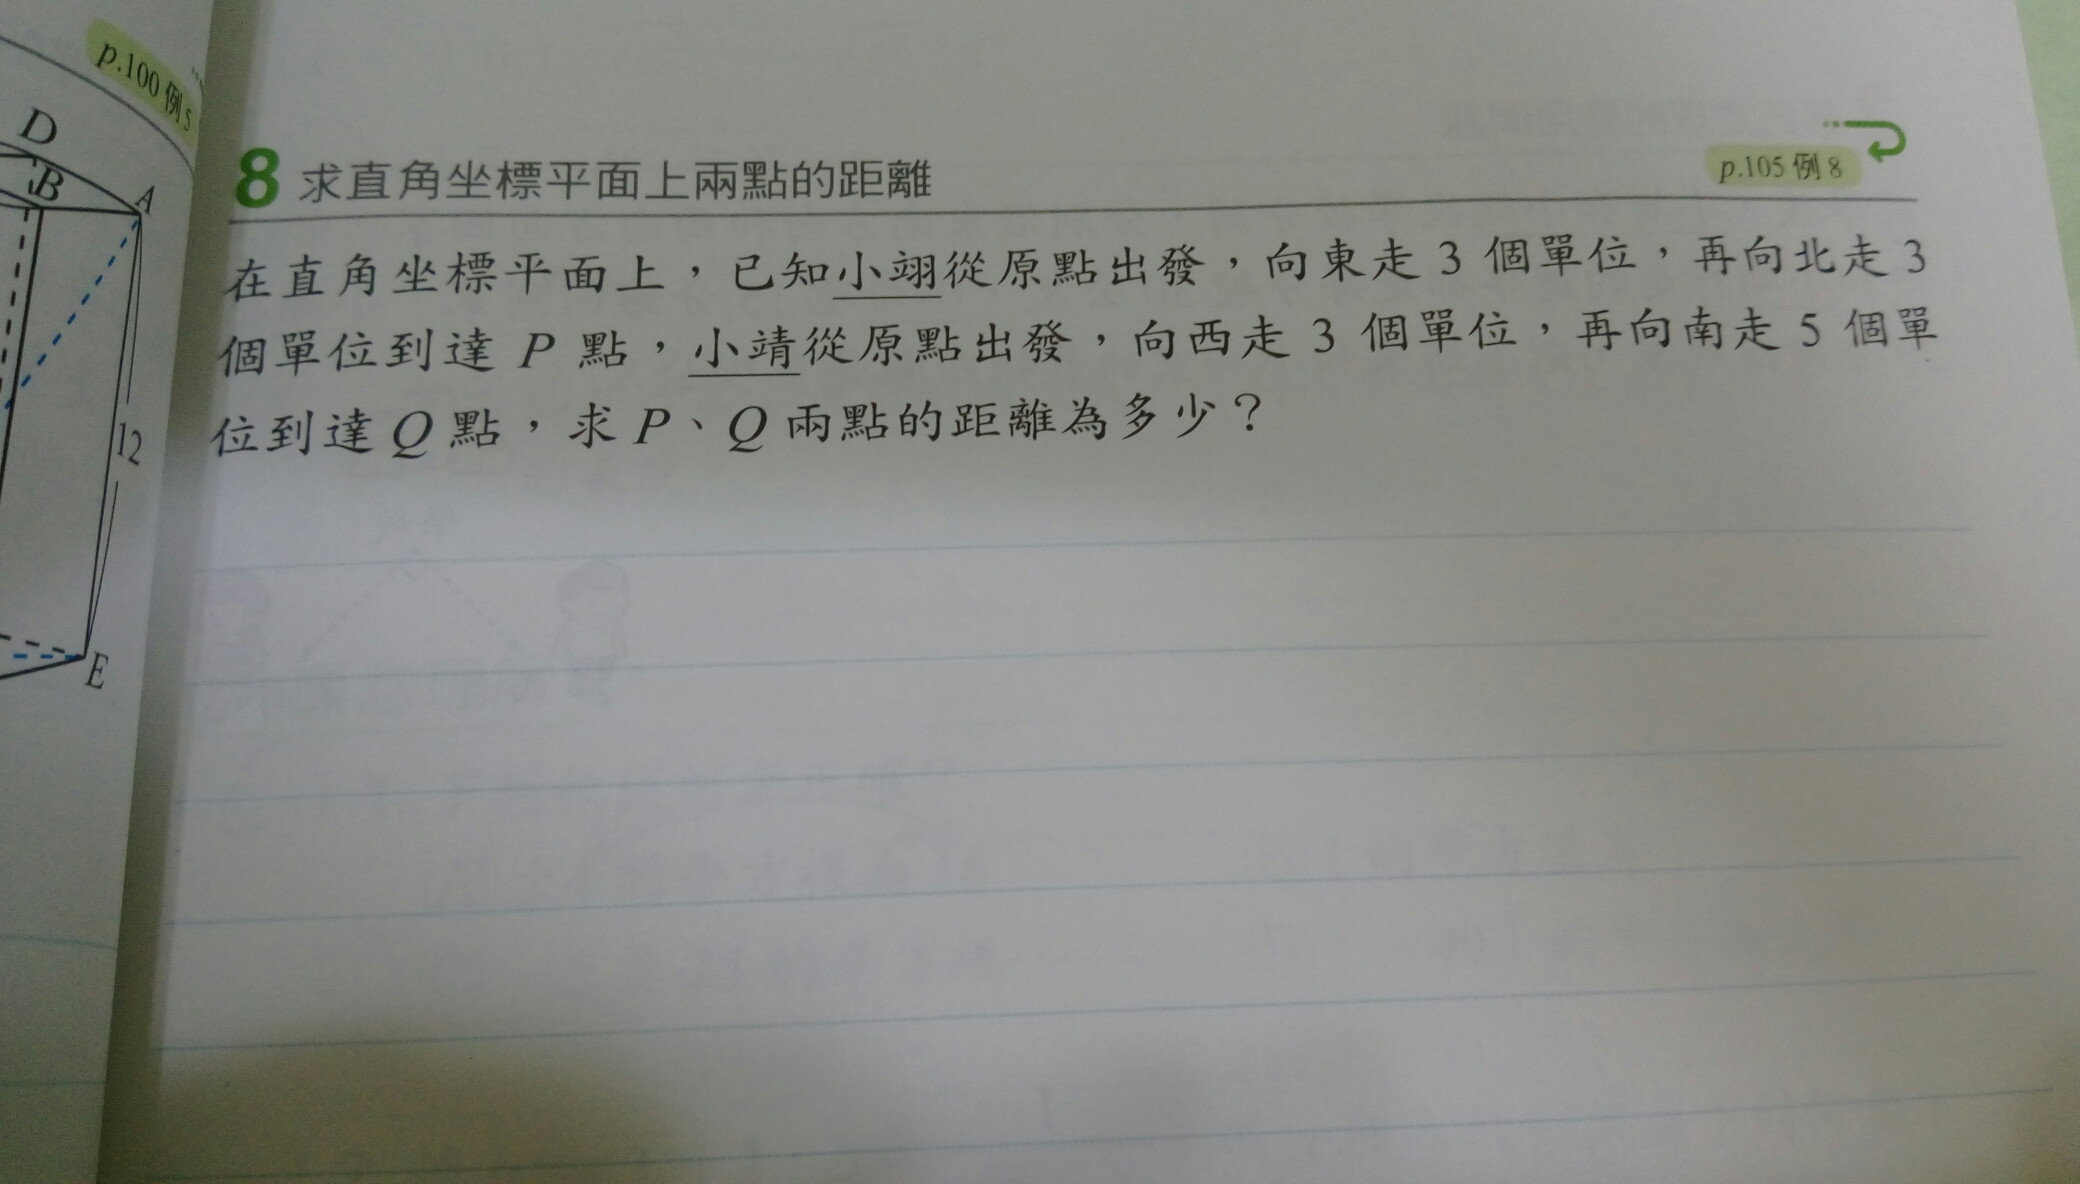 p.100 例 5
D
B
A
12
E
8 求直角坐標平面上兩點的距離
p.105 例 8
在直角坐標平面上，已知小翊從原點出發，向東走 3 個單位，再向北走 3
個單位到達 P 點，小靖從原點出發，向西走 3 個單位，再向南走 5 個單
位到達 Q 點，求 P、Q 兩點的距離為多少？